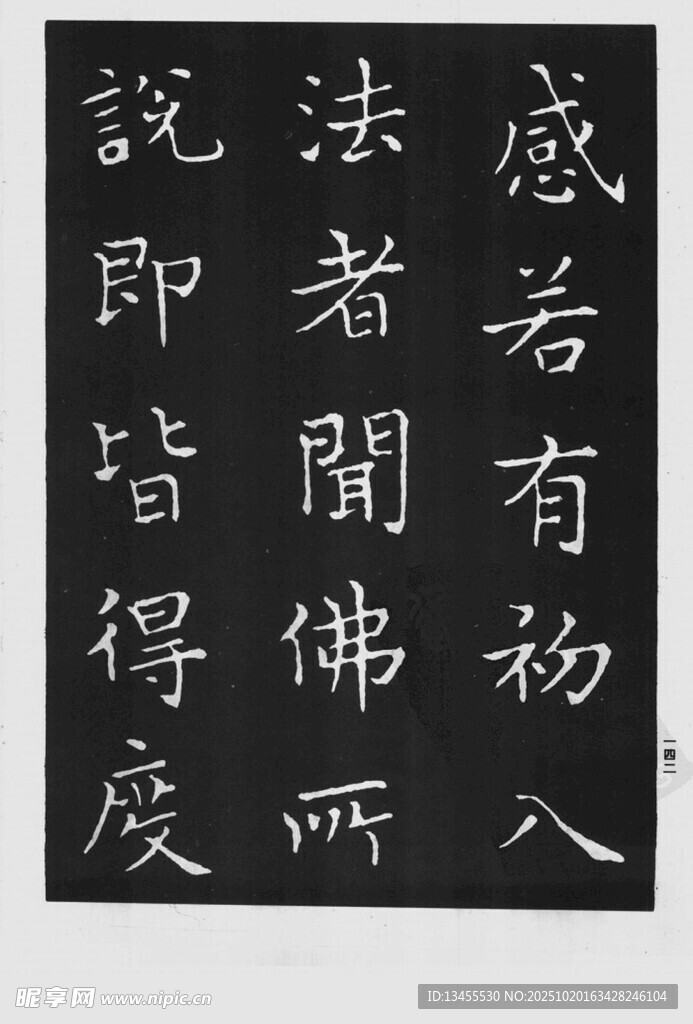 感若有初入
法者聞佛所
說即皆得度
一四二
昵享网 www.nipic.cn
ID:13455530 NO:20251020163428246104